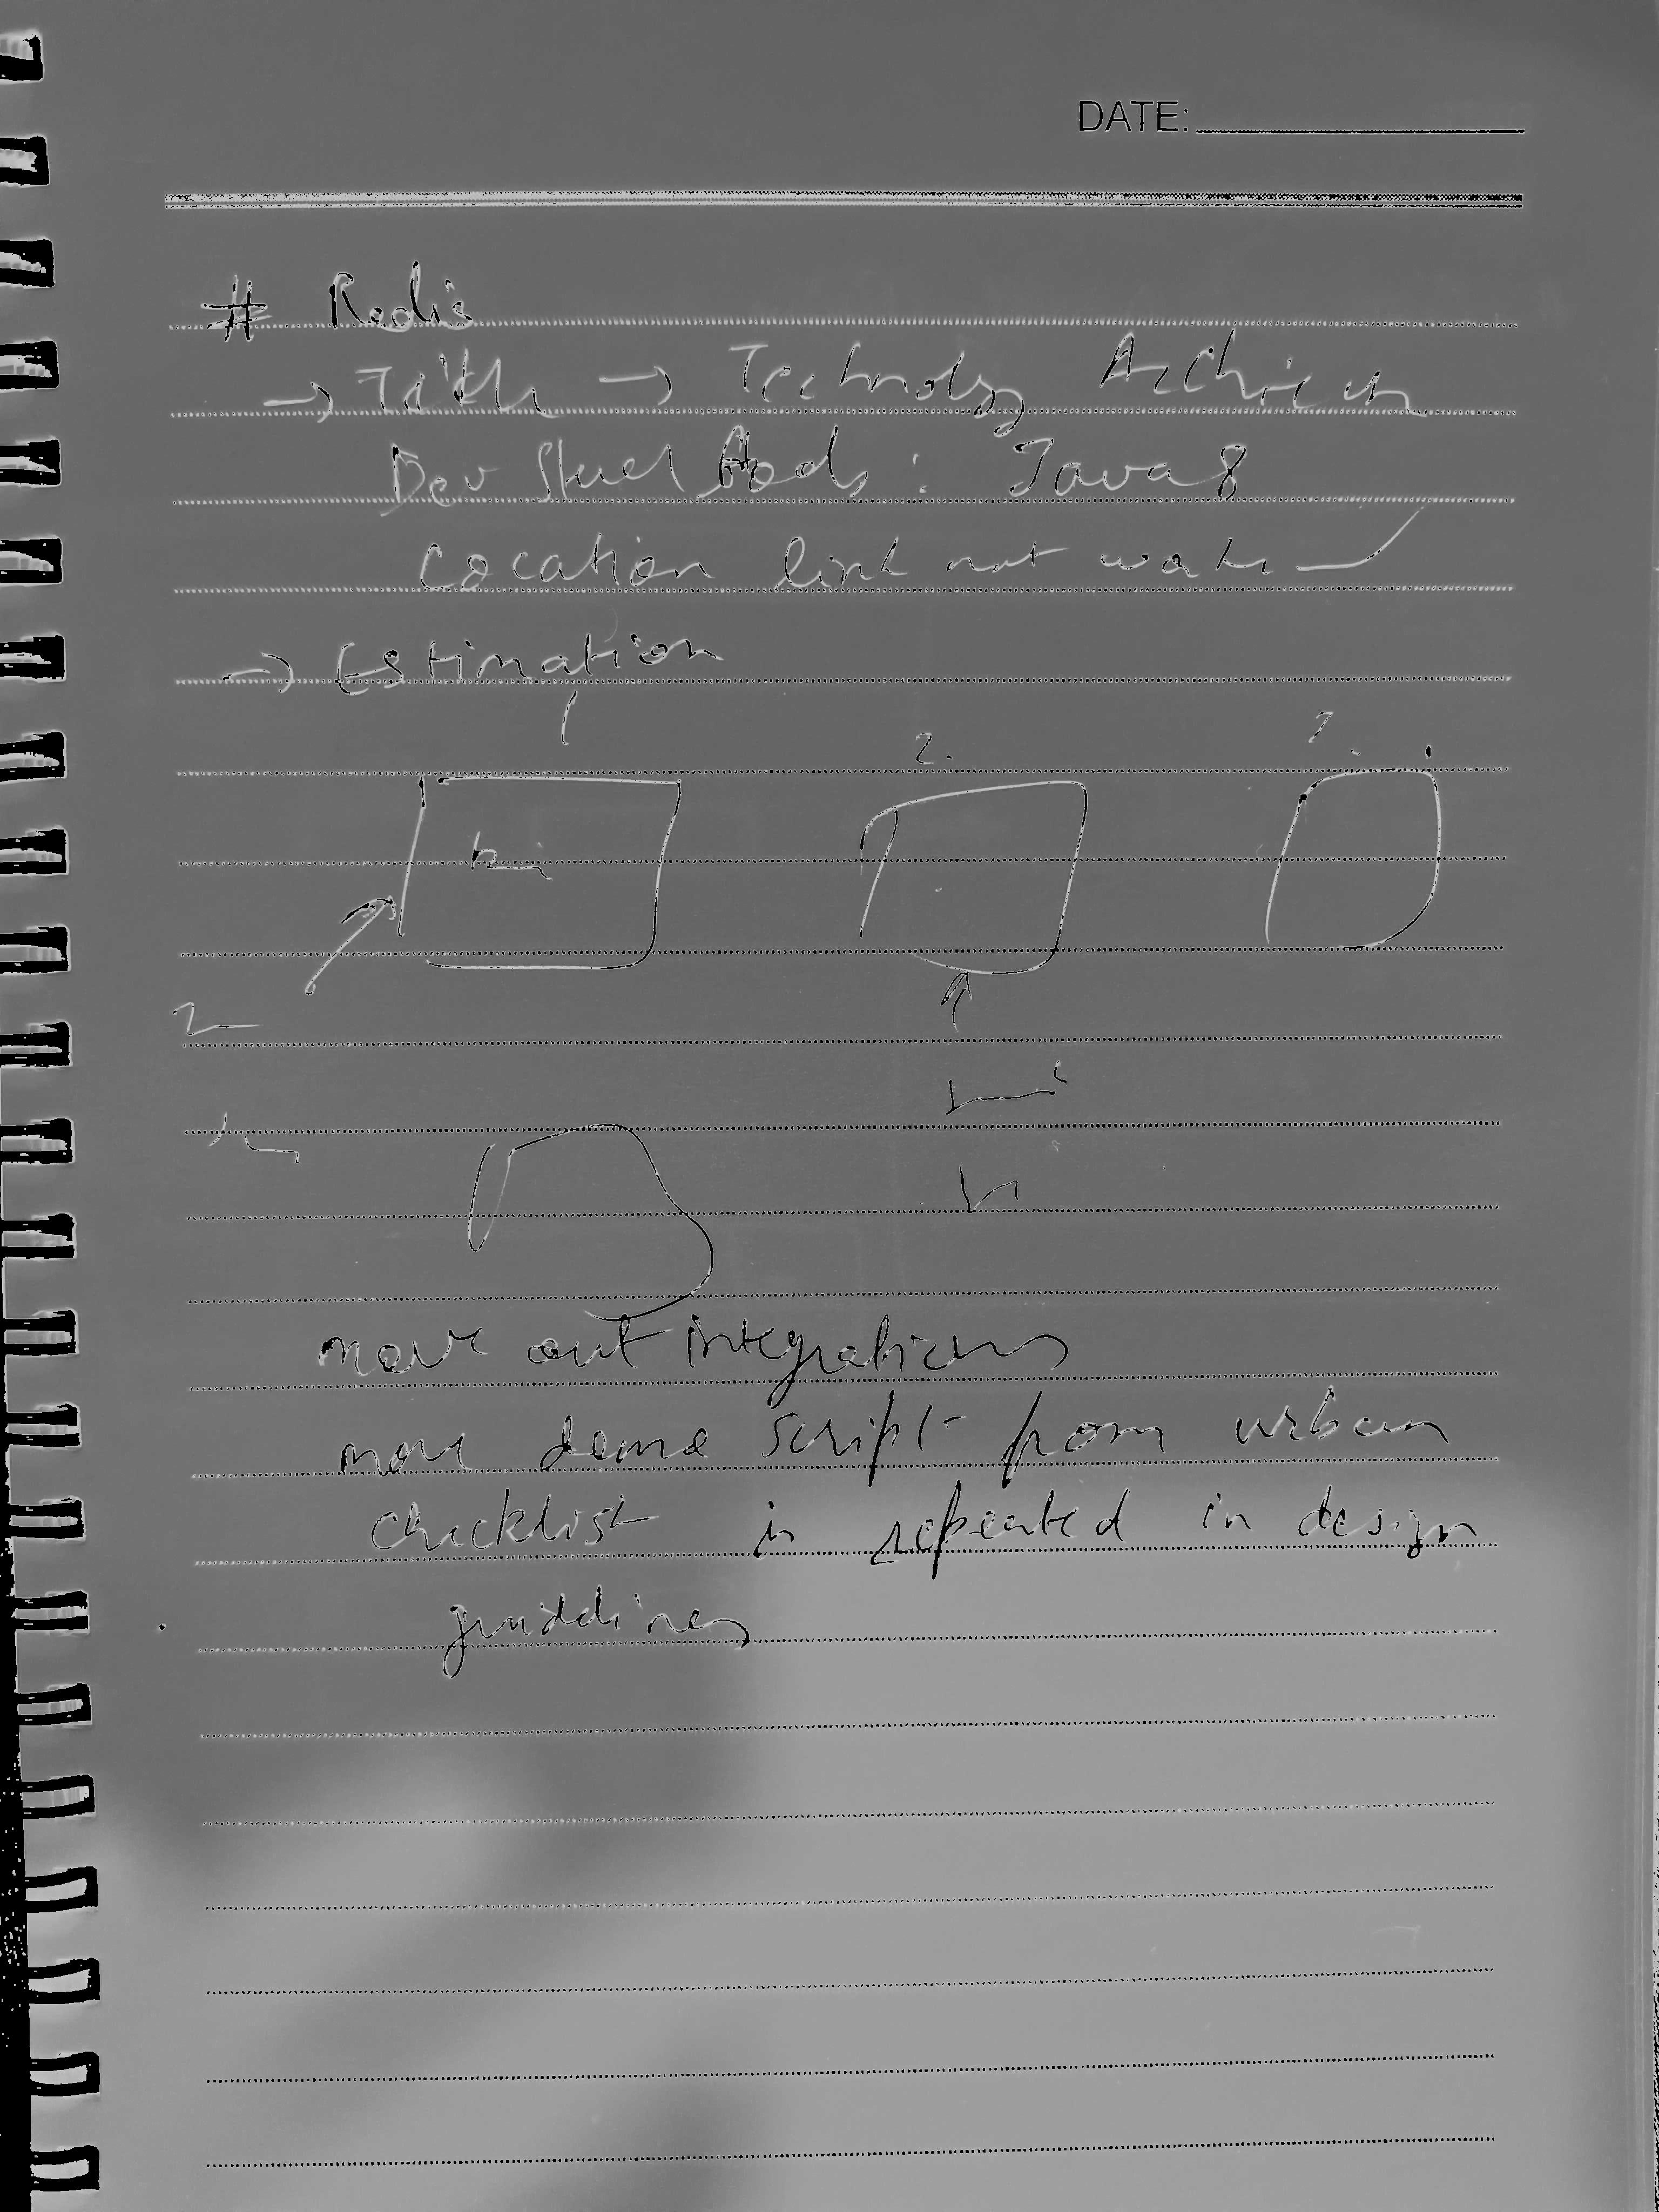 DATE:
# Redis
→ Title → Technology Architect
Dev : Java 8
Location link not works
→ Estimation
1 2.
move out integrations
move demo script from urban
checklist is repeated in design
guidelines